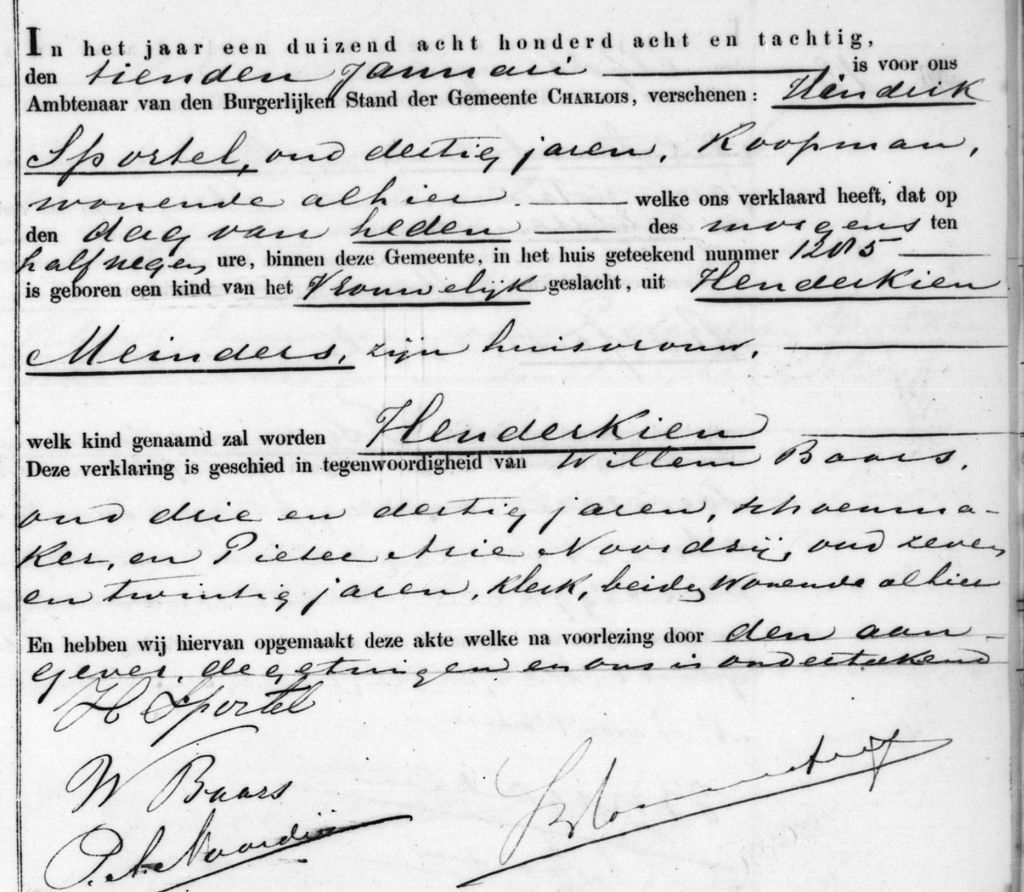 In het jaar een duizend acht honderd acht en tachtig,
den tienden Januari is voor ons
Ambtenaar van den Burgerlijken Stand der Gemeente CHARLOIS, verschenen: Hendrik
Sportel, oud dertig jaren, Koopman,
wonende alhier welke ons verklaard heeft, dat op
den dag van heden des morgens ten
half negen ure, binnen deze Gemeente, in het huis geteekend nummer
is geboren een kind van het Vrouwelijk geslacht, uit Henderkien
Meinders, zijn huisvrouw,
welk kind genaamd zal worden Henderkien
Deze verklaring is geschied in tegenwoordigheid van Willem Baars,
oud drie en dertig jaren, schoenma-
ker, en Pieter Arie Noordzij, oud zeven
en twintig jaren, klerk, beiden wonende alhier
En hebben wij hiervan opgemaakt deze akte welke na voorlezing door den aan-
gever, de getuigen en ons is onderteekend
H Sportel
W Baars
P. A. Noordzij